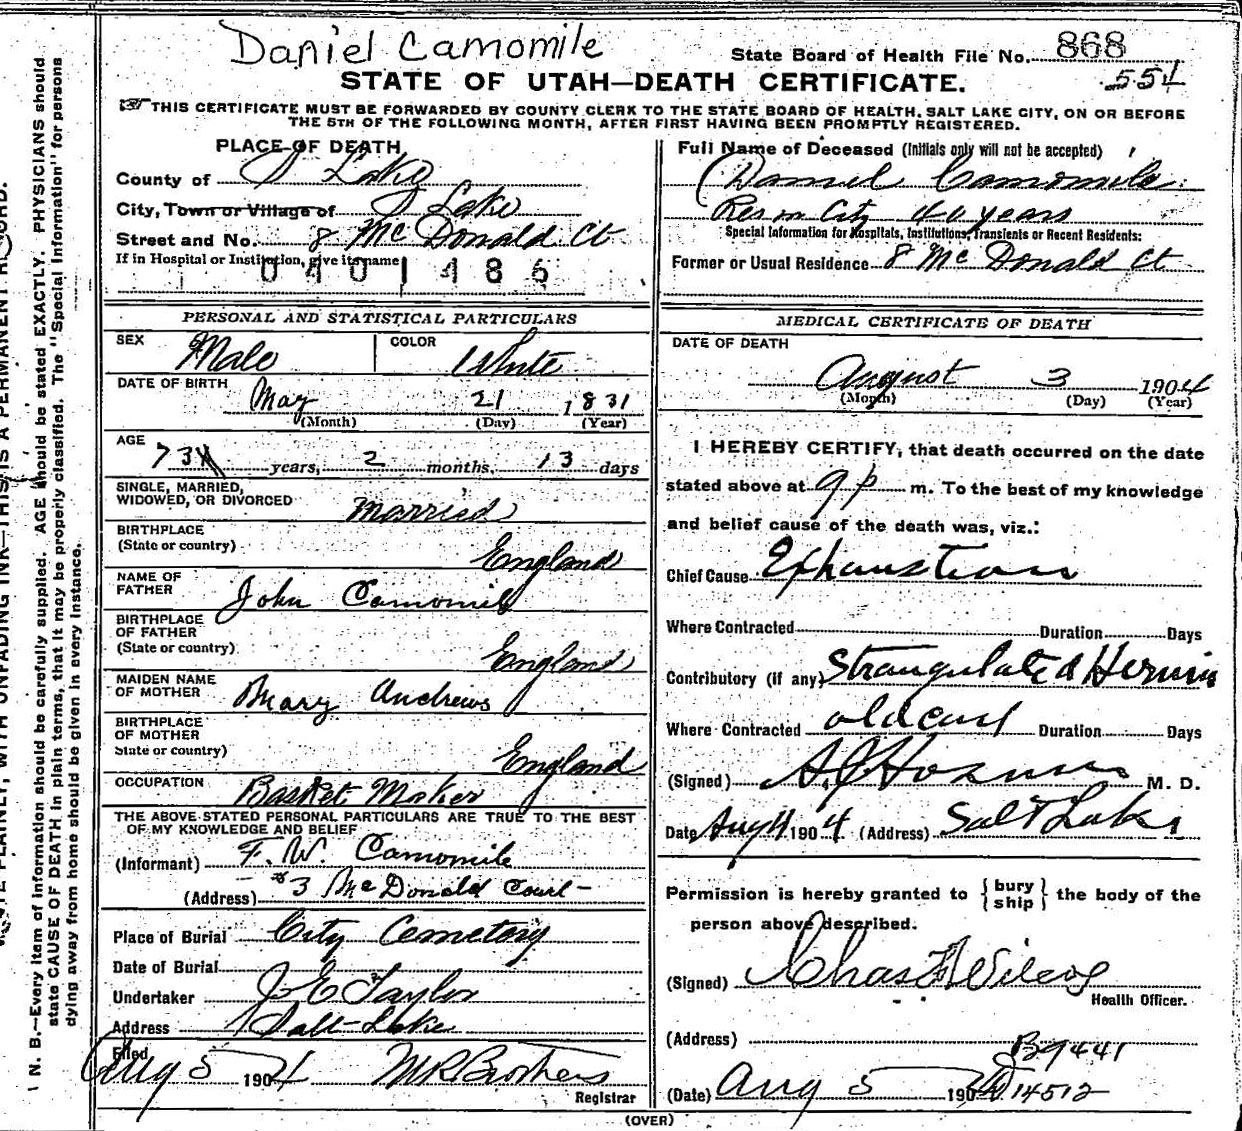 Daniel Camomile
State Board of Health File No. 868
554
STATE OF UTAH—DEATH CERTIFICATE.
THIS CERTIFICATE MUST BE FORWARDED BY COUNTY CLERK TO THE STATE BOARD OF HEALTH, SALT LAKE CITY, ON OR BEFORE
THE 5TH OF THE FOLLOWING MONTH, AFTER FIRST HAVING BEEN PROMPTLY REGISTERED.
PLACE OF DEATH
County of S Lake
City, Town or Village of S Lake
Street and No. 8 Mc Donald Ct
If in Hospital or Institution, give its name
0401485
Full Name of Deceased (Initials only will not be accepted)
Daniel Camomile
Res in City 40 years
Special Information for Hospitals, Institutions, Transients or Recent Residents:
Former or Usual Residence 8 Mc Donald Ct
PERSONAL AND STATISTICAL PARTICULARS
SEX Male COLOR White
DATE OF BIRTH
May 21 1831
(Month) (Day) (Year)
AGE
73 years, 2 months, 13 days
SINGLE, MARRIED,
WIDOWED, OR DIVORCED Married
BIRTHPLACE
(State or country) England
NAME OF
FATHER John Camomile
BIRTHPLACE
OF FATHER
(State or country) England
MAIDEN NAME
OF MOTHER Mary Andrews
BIRTHPLACE
OF MOTHER
State or country) England
OCCUPATION Basket Maker
THE ABOVE STATED PERSONAL PARTICULARS ARE TRUE TO THE BEST
OF MY KNOWLEDGE AND BELIEF
(Informant) F. W. Camomile
(Address) #3 Mc Donald Court
Place of Burial City Cemetery
Date of Burial
Undertaker J E Taylor
Address Salt Lake
Filed
Aug 5 1904 M R Brothers
Registrar
MEDICAL CERTIFICATE OF DEATH
DATE OF DEATH
August 3 1904
(Month) (Day) (Year)
I HEREBY CERTIFY, that death occurred on the date
stated above at 9 p m. To the best of my knowledge
and belief cause of the death was, viz.:
Chief Cause Exhaustion
Where Contracted Duration Days
Contributory (if any) Strangulated Hernia
Where Contracted Duration Days
(Signed) M. D.
Date Aug 4 1904 (Address) Salt Lake
Permission is hereby granted to {bury
ship} the body of the
person above described.
(Signed) Chas F Wilcox
Health Officer.
(Address)
B9441
(Date) Aug 5 190 14512
(OVER)
N. B.—Every item of information should be carefully supplied. AGE should be stated EXACTLY. PHYSICIANS should
state CAUSE OF DEATH in plain terms, that it may be properly classified. The "Special Information" for persons
dying away from home should be given in every instance.
PLAINLY, WITH UNFADING INK—THIS IS A PERMANENT RECORD.